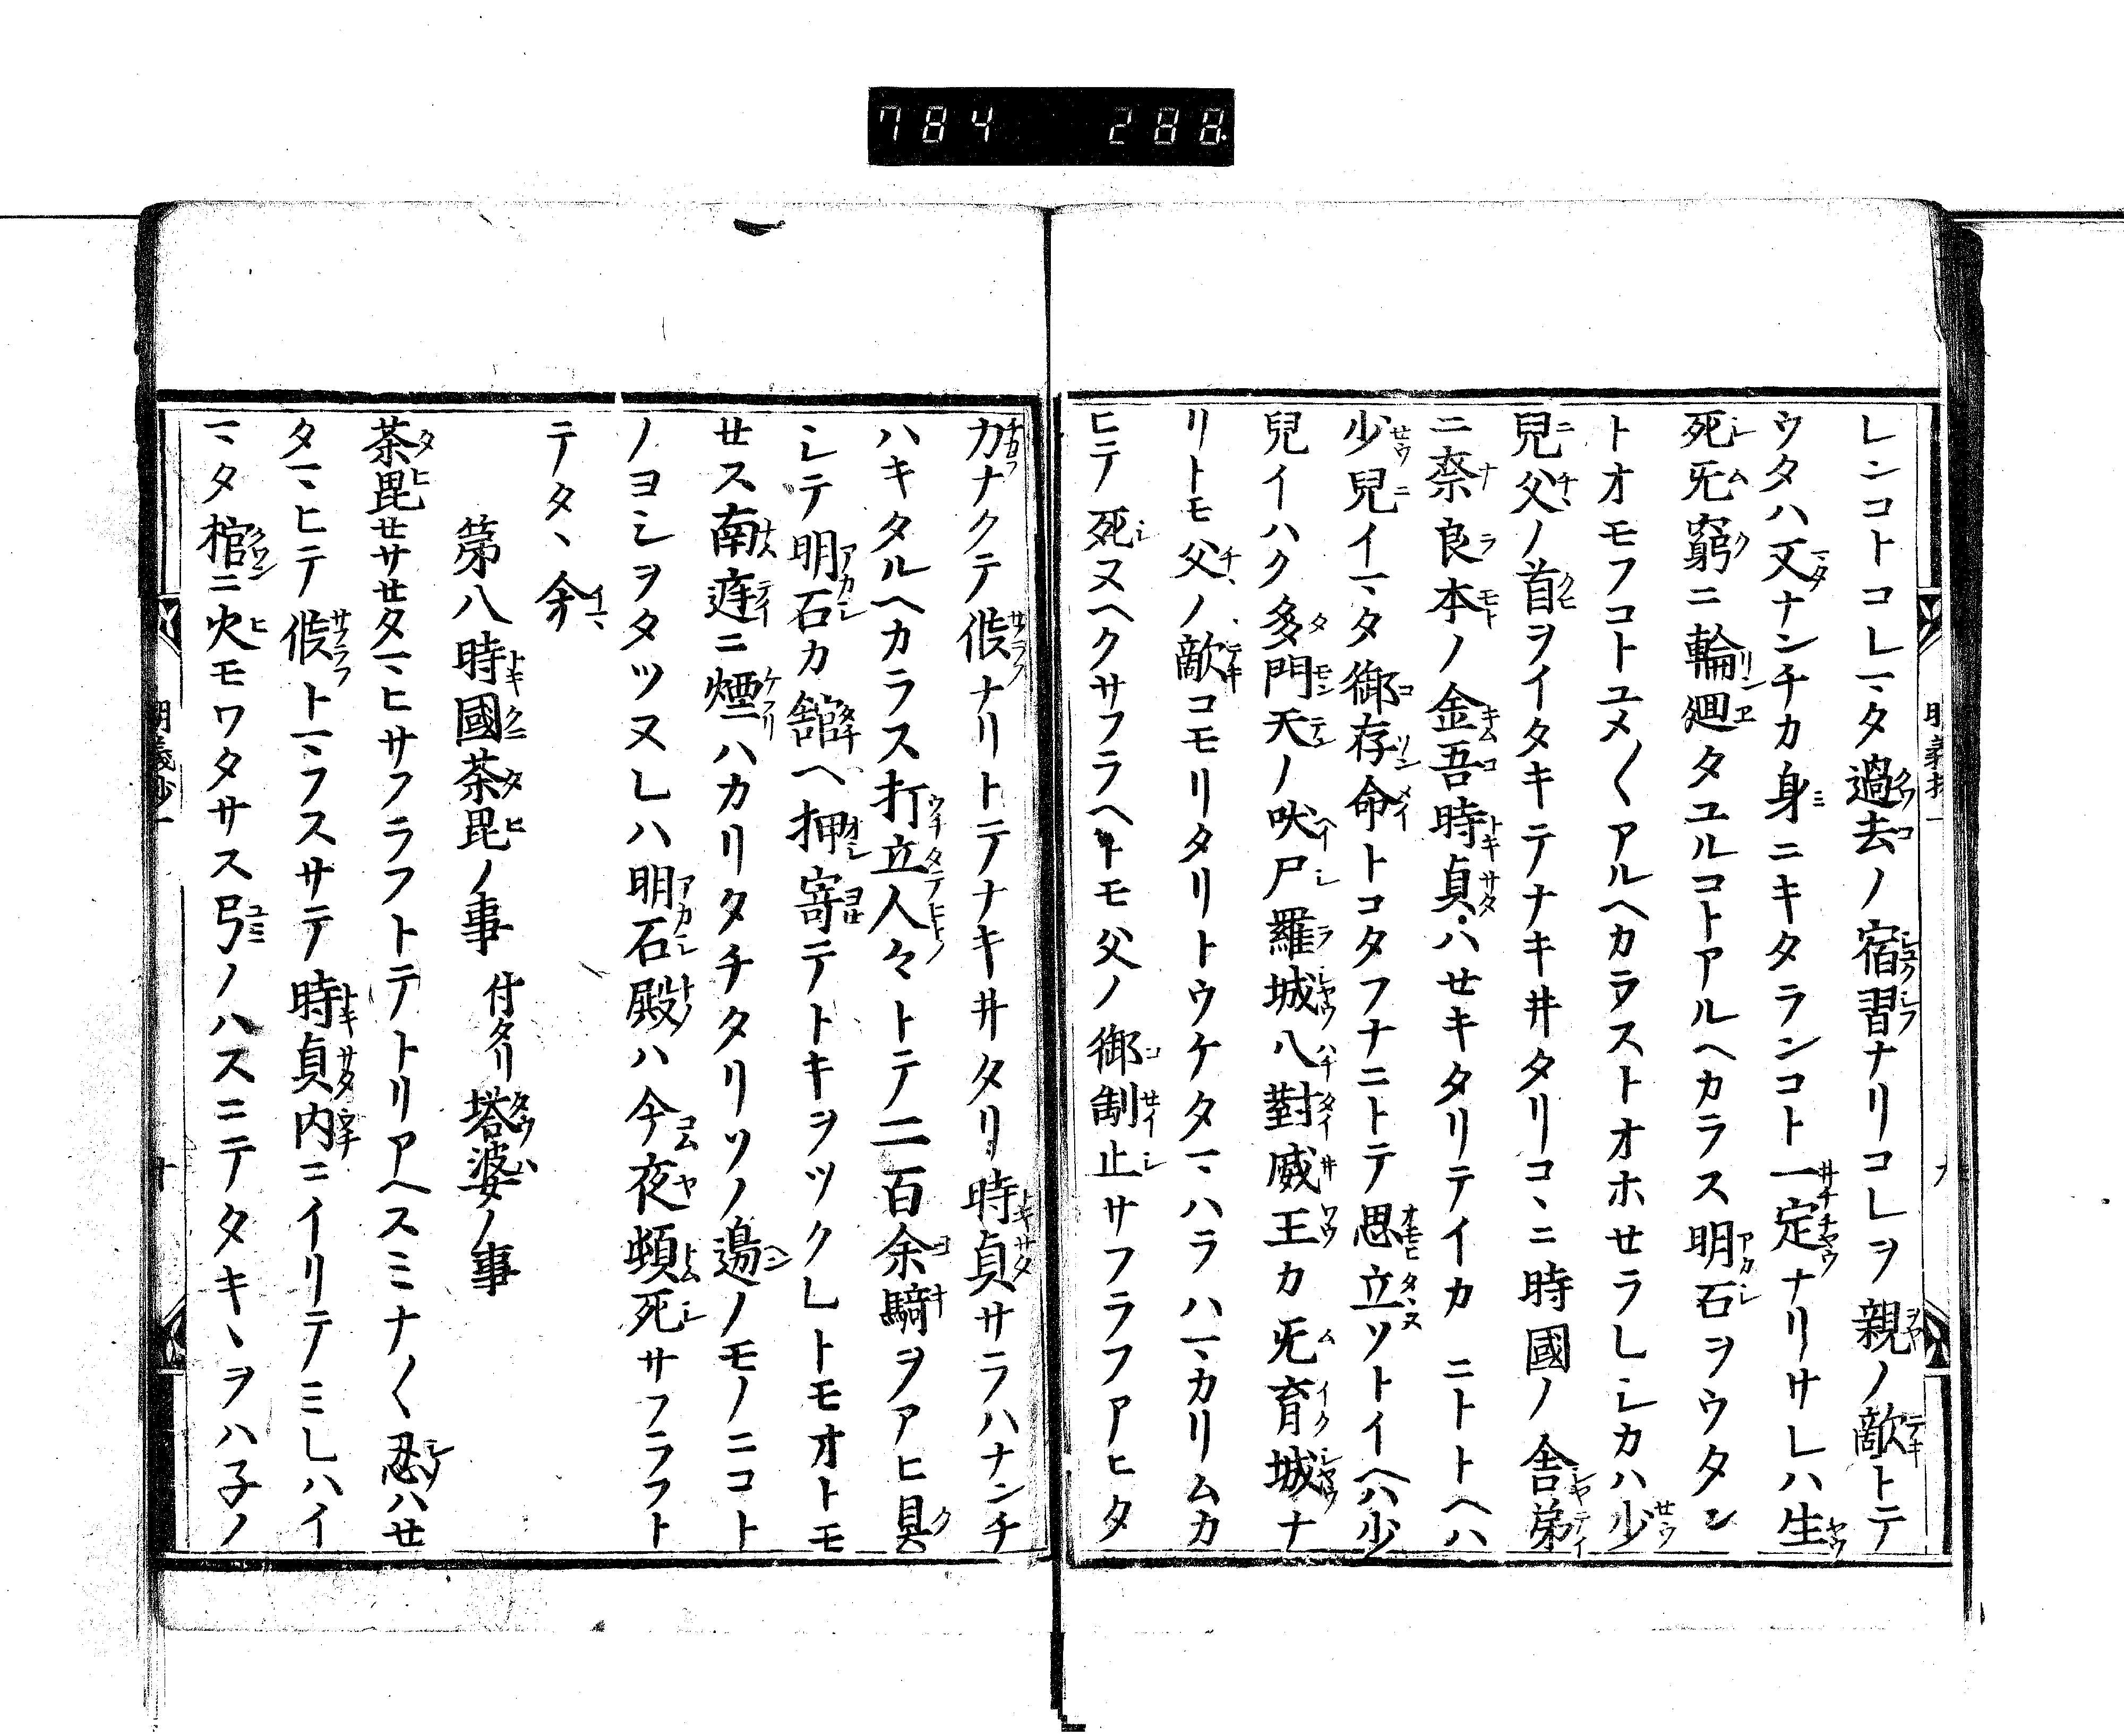 784 288
レンコトコレマタ過去ノ宿習ナリコレヲ親ノ敵トテ
ウタハ又ナンチカ身ニキタランコト一定ナリサレハ生
死无窮ニ輪廻タユルコトアルヘカラス明石ヲウタン
トオモフコトユメ〱アルヘカラストオホセラレシカハ少
兒父ノ首ヲイタキテナキ井タリコヽニ時國ノ舎弟
ニ奈良本ノ金吾時貞ハセキタリテイカニトトヘハ
少兒イマタ御存命トコタフナニトテ思立ソトイヘハ少
兒イハク多門天ノ吠尸羅城八對威王カ无育城ナ
リトモ父ノ敵コモリタリトウケタマハラハマカリムカ
ヒテ死ヌヘクサフラヘトモ父ノ御制止サフラフアヒタ
力ナクテ候ナリトテナキ井タリ時貞サラハナンチ
ハキタルヘカラス打立人々トテ二百余騎ヲアヒ具
シテ明石カ舘ヘ押寄テトキヲツクレトモオトモ
せス南庭ニ煙ハカリタチタリソノ邊ノモノニコト
ノヨシヲタツヌレハ明石殿ハ今夜頓死サフラフト
テタヽ今
第八時國荼毘ノ事 付タリ塔婆ノ事
荼毘せサせタマヒサフラフトテトリアヘスミナ〱忍ハせ
タマヒテ候トマフスサテ時貞内ニイリテミレハイ
マタ棺ニ火モワタサス弓ノハスニテタキヽヲハ子ノ